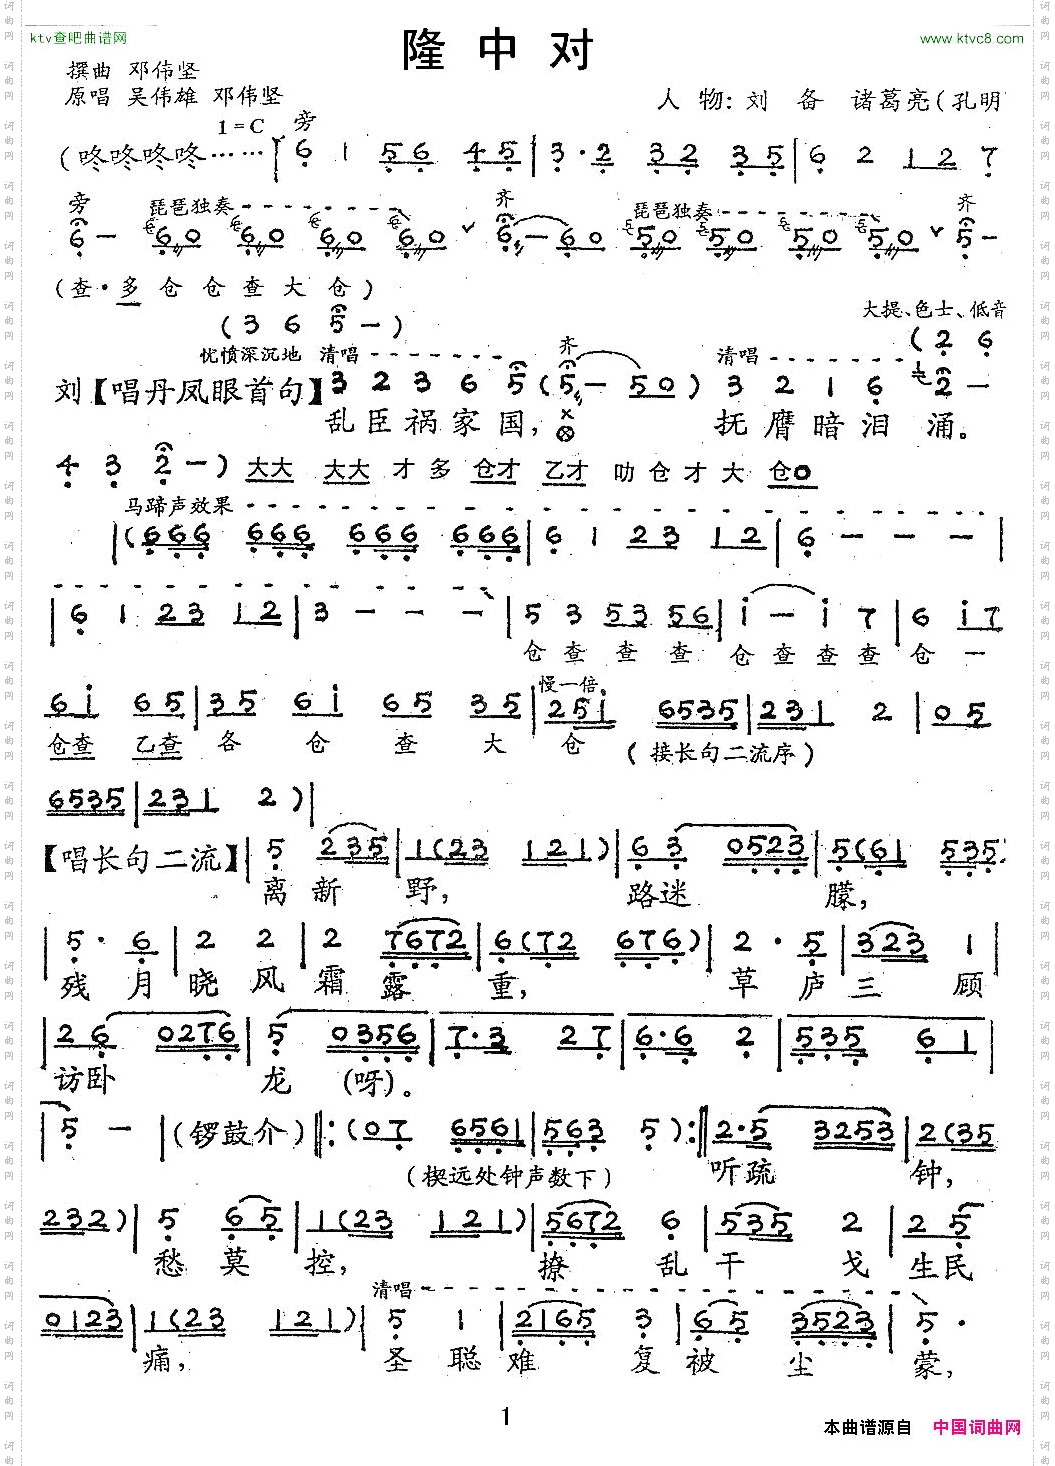 ktv查吧曲谱网
www.ktvc8.com
隆中对
撰曲 邓伟坚
原唱 吴伟雄 邓伟坚
人物:刘备 诸葛亮(孔明
1=C 旁
(咚咚咚咚…… 6 1 56 45 | 3·2 32 35 | 6 2 12 7
旁 琵琶独奏 齐 琵琶独奏 齐
6 — 60 60 60 60 6 — 60 50 50 50 50 5 —
(查·多仓仓查大仓)
(3 6 5 —)
大提、色士、低音
忧愤深沉地 清唱 齐 清唱 (2 6
刘【唱丹凤眼首句】3 2 3 6 5 (5 — 50) 3 2 1 6 2 —
乱臣祸家国, 抚膺暗泪涌。
4 3 2 —) 大大 大大 才多仓才 乙才 叻仓才大仓0
马蹄声效果
|(666 666 666 666 | 6 1 23 12 | 6 — — — |
| 6 1 23 12 | 3 — — — | 5 3 53 56 | i — i 7 | 6 i7
仓查查查 仓查查查仓一
慢一倍
6i 65 | 35 6i 65 35 | 25i 6535 | 231 2 | 05
仓查 乙查 各仓查大仓 (接长句二流序)
6535 | 231 2) |
【唱长句二流】| 5 235 | 1(23 121) | 6 3 0523 | 5(61 535
离新野, 路迷朦,
| 5· 6 | 2 2 | 2 7672 | 6(72 676) | 2· 5 | 323 1 |
残月晓风霜露重, 草庐三顾
| 26 0276 | 5 0356 | 7·3 27 | 6·6 2 | 535 61 |
访卧龙(呀)。
| 5 — | (锣鼓介) ‖: (07 6561 | 563 5) :‖ 2·5 3253 | 2(35
(楔远处钟声数下) 听疏钟,
232) | 5 65 | 1(23 121) | 5672 6 | 535 2 | 2 5
愁莫控, 撩乱干戈生民
清唱
0123 | 1(23 121) | 5 1 | 2165 3 | 65 3523 | 5·
痛, 圣聪难复被尘蒙,
1
本曲谱源自 中国词曲网